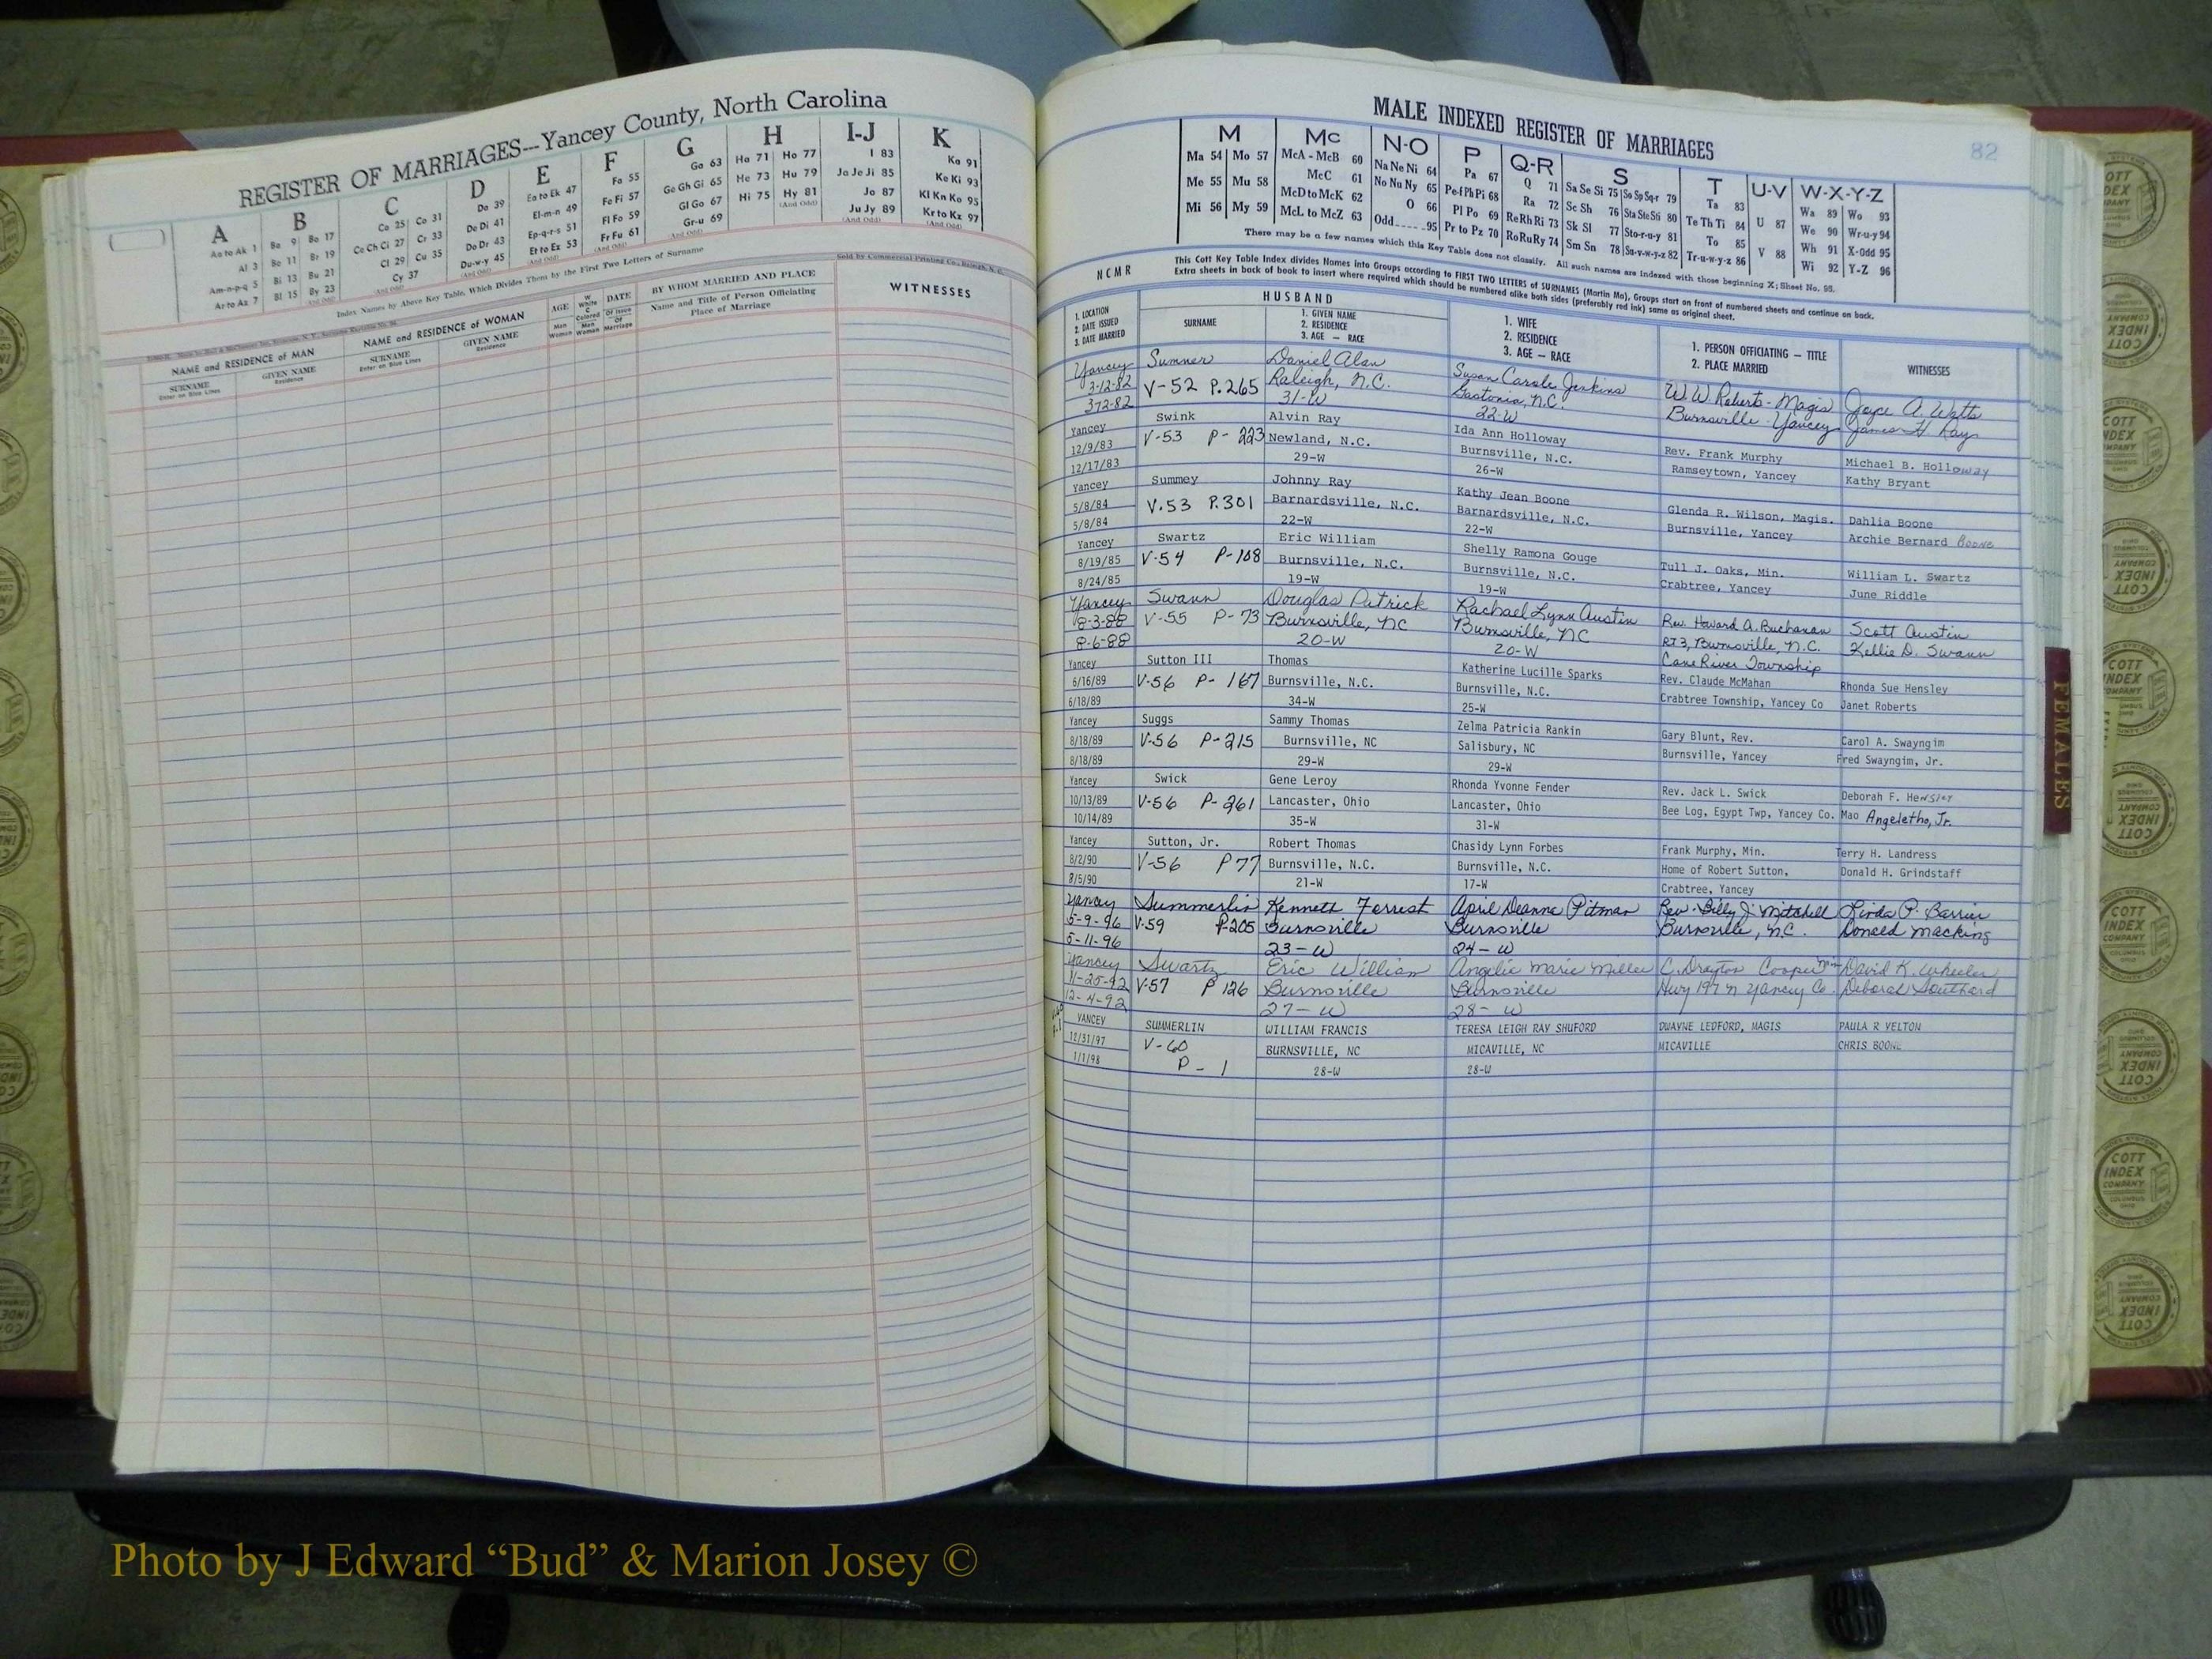 REGISTER OF MARRIAGES---Yancey County, North Carolina
A
Aa to Ak 1
Al 3
Am-n-p-q 5
Ar to Az 7
B
Ba 9 Bo 17
Be 11 Br 19
Bi 13 Bu 21
Bl 15 By 23
C
Ca 25 Co 31
Ce Ch Ci 27 Cr 33
Cl 29 Cu 35
Cy 37
D
Da 39
De Di 41
Do Dr 43
Du-w-y 45
E
Ea to Ek 47
El-m-n 49
Ep-q-r-s 51
Et to Ez 53
F
Fa 55
Fe Fi 57
Fl Fo 59
Fr Fu 61
G
Ga 63
Ge Gh Gi 65
Gl Go 67
Gr-u 69
H
Ha 71 Ho 77
He 73 Hu 79
Hi 75 Hy 81
I-J
I 83
Ja Je Ji 85
Jo 87
Ju Jy 89
K
Ka 91
Ke Ki 93
Kl Kn Ko 95
Kr to Kz 97
Index Names by Above Key Table, Which Divides Them by the First Two Letters of Surname
Sold by Commercial Printing Co., Raleigh, N. C.
NAME and RESIDENCE of MAN
SURNAME
Enter on Blue Lines
GIVEN NAME
Residence
NAME and RESIDENCE of WOMAN
SURNAME
Enter on Blue Lines
GIVEN NAME
Residence
AGE
Man
Woman
W
White
C
Colored
Man
Woman
DATE
Of Issue
Of
Marriage
BY WHOM MARRIED AND PLACE
Name and Title of Person Officiating
Place of Marriage
WITNESSES
MALE INDEXED REGISTER OF MARRIAGES
82
M
Ma 54 Mo 57
Me 55 Mu 58
Mi 56 My 59
Mc
McA - McB 60
McC 61
McD to McK 62
McL to McZ 63
N-O
Na Ne Ni 64
No Nu Ny 65
O 66
Odd 95
P
Pa 67
Pe-f Ph Pi 68
Pl Po 69
Pr to Pz 70
Q-R
Q 71
Ra 72
Re Rh Ri 73
Ro Ru Ry 74
S
Sa Se Si 75 So Sp Sq-r 79
Sc Sh 76 Sta Ste Sti 80
Sk Sl 77 Sto-r-u-y 81
Sm Sn 78 Su-v-w-y-z 82
T
Ta 83
Te Th Ti 84
To 85
Tr-u-w-y-z 86
U-V
U 87
V 88
W-X-Y-Z
Wa 89 Wo 93
We 90 Wr-u-y 94
Wh 91 X-Odd 95
Wi 92 Y-Z 96
There may be a few names which this Key Table does not classify. All such names are indexed with those beginning X; Sheet No. 95.
NCMR
This Cott Key Table Index divides Names into Groups according to FIRST TWO LETTERS of SURNAMES (Martin Ma), Groups start on front of numbered sheets and continue on back.
Extra sheets in back of book to insert where required which should be numbered alike both sides (preferably red ink) same as original sheet.
1. LOCATION
2. DATE ISSUED
3. DATE MARRIED
HUSBAND
SURNAME
1. GIVEN NAME
2. RESIDENCE
3. AGE — RACE
1. WIFE
2. RESIDENCE
3. AGE — RACE
1. PERSON OFFICIATING — TITLE
2. PLACE MARRIED
WITNESSES
Yancey Sumner Daniel Alan Susan Carole Jenkins W.W. Roberts - Magis Joyce A. Watts
3-12-82 V-52 P.265 Raleigh, N.C. Gastonia, N.C. Burnsville - Yancey James H. Ray
3-12-82 31-W 22-W
Yancey Swink Alvin Ray Ida Ann Holloway Rev. Frank Murphy Michael B. Holloway
12/9/83 V-53 P-223 Newland, N.C. Burnsville, N.C. Ramseytown, Yancey Kathy Bryant
12/17/83 29-W 26-W
Yancey Summey Johnny Ray Kathy Jean Boone Glenda R. Wilson, Magis. Dahlia Boone
5/8/84 V.53 P.301 Barnardsville, N.C. Barnardsville, N.C. Burnsville, Yancey Archie Bernard Boone
5/8/84 22-W 22-W
Yancey Swartz Eric William Shelly Ramona Gouge Tull J. Oaks, Min. William L. Swartz
8/19/85 V-54 P-108 Burnsville, N.C. Burnsville, N.C. Crabtree, Yancey June Riddle
8/24/85 19-W 19-W
Yancey Swann Douglas Patrick Rachael Lynn Austin Rev. Howard A. Buchanan Scott Austin
8-3-88 V-55 P-73 Burnsville, NC Burnsville, NC RT 3, Burnsville, N.C. Kellie D. Swann
8-6-88 20-W 20-W Cane River Township
Yancey Sutton III Thomas Katherine Lucille Sparks Rev. Claude McMahan Rhonda Sue Hensley
6/16/89 V-56 P-167 Burnsville, N.C. Burnsville, N.C. Crabtree Township, Yancey Co Janet Roberts
6/18/89 34-W 25-W
Yancey Suggs Sammy Thomas Zelma Patricia Rankin Gary Blunt, Rev. Carol A. Swayngim
8/18/89 V-56 P-215 Burnsville, NC Salisbury, NC Burnsville, Yancey Fred Swayngim, Jr.
8/18/89 29-W 29-W
Yancey Swick Gene Leroy Rhonda Yvonne Fender Rev. Jack L. Swick Deborah F. Hensley
10/13/89 V-56 P-261 Lancaster, Ohio Lancaster, Ohio Bee Log, Egypt Twp, Yancey Co. Mao Angeletho, Jr.
10/14/89 35-W 31-W
Yancey Sutton, Jr. Robert Thomas Chasidy Lynn Forbes Frank Murphy, Min. Terry H. Landress
8/2/90 V-56 P77 Burnsville, N.C. Burnsville, N.C. Home of Robert Sutton, Donald H. Grindstaff
8/5/90 21-W 17-W Crabtree, Yancey
Yancey Summerlin Kenneth Forrest April Deanna Pitman Rev. Billy J. Mitchell Linda P. Barrier
5-9-96 V-59 P-205 Burnsville Burnsville Burnsville, N.C. Donald Macking
5-11-96 23-W 24-W
Yancey Swartz Eric William Angelic Marie Miller C. Drayton Cooper Min David K. Wheeler
11-25-92 V-57 P 126 Burnsville Burnsville Hwy 197 N Yancey Co. Deborah Southard
12-4-92 27-W 28-W
YANCEY SUMMERLIN WILLIAM FRANCIS TERESA LEIGH RAY SHUFORD DWAYNE LEDFORD, MAGIS PAULA R YELTON
12/31/97 V-60 BURNSVILLE, NC MICAVILLE, NC MICAVILLE CHRIS BOONE
1/1/98 P-1 28-W 28-W
FEMALES
COTT
INDEX
COMPANY
COLUMBUS
OHIO
Photo by J Edward “Bud” & Marion Josey ©